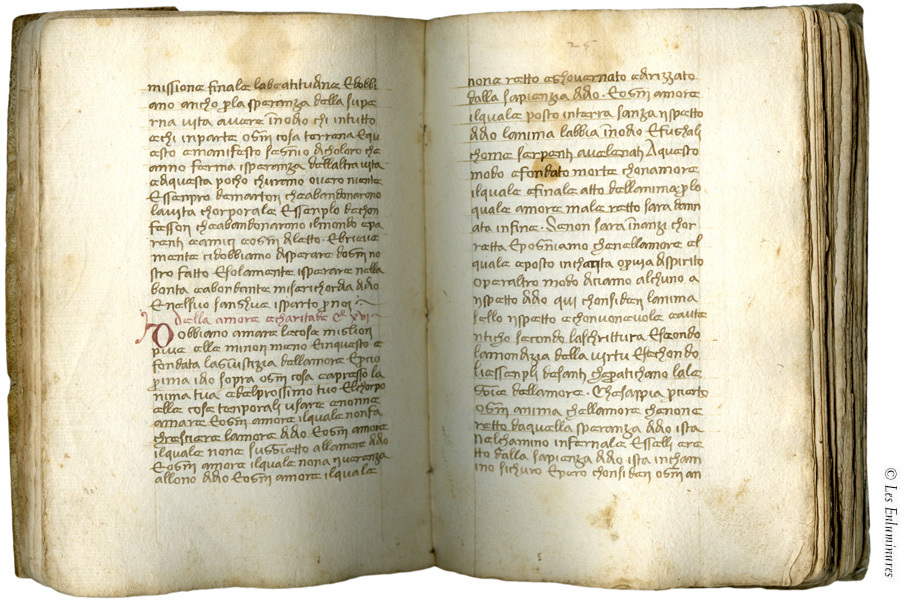 missione finale labeatitudine Edobbi
ano ancho p la speranza della supe
rna vita avere inodio chi intutto
echi inparte ogni cosa terrena Equ
esto emanifesto segnio dicholoro che
anno ferma isperanza dellaltra vita
ediquesta pocho churano overo niente
Essenpro demartori cheabandonarono
lavita chorporale Essenplo dechon
fessori cheabandonarono ilmondo epa
renti eamici eogni diletto. Ebrieve
mente tidobbiamo disperare dogni no
stro fatto Esolamente isperare nella
bonta eabondante miserichordia didio
Enelsuo sanghue isparto p noi
della amore echaritade Co xvi
Dobbiamo amare lecose migliori
piue elle minori meno Einquesto e
fondata lagiustizia dellamore Epero
prima idio sopra ogni cosa eapresso la
nima tua edelprossimo tuo Elchorpo
elle cose tenporali usare enonne
amare Eogni amore ilquale nonfa
chresciere lamore didio Eogni amore
ilquale none suggietto allamore didio
Eogni amore ilquale nona riverenza
allono didio Eogni amore ilquale
25
none retto eghovernato edirizzato
dalla sapienzia didio. Eogni amore
ilquale posto interra sanza rispetto
didio lanima labbia inodio Efughali
chome serpenti avelenati Aquesto
modo efondato morte chonamore
ilquale efinale atto dellanima p lo
quale amore male retto sara dann
ata infine. Senon sara inanzi chor
retta Epogniamo chenellamore el
quale eposto inchatita opura dispirito
operaltro modo diciamo alchuno a
rispetto didio qui chonsideri lanima
sello rispetto echonvenevole eaute
nticho secondo laschrittura Esecondo
lamondizia della virtu Esechondo
liessenpli desanti chepratichano lale
ggie dellamore. Chesappia pcierto
ogni anima chellamore chenone
retto daquella speranza didio ista
nelchamino infernale Esselli ere
tto dalla sapienza didio ista incham
ino sichuro Epero chonsideri ogni an
© Les Enluminures